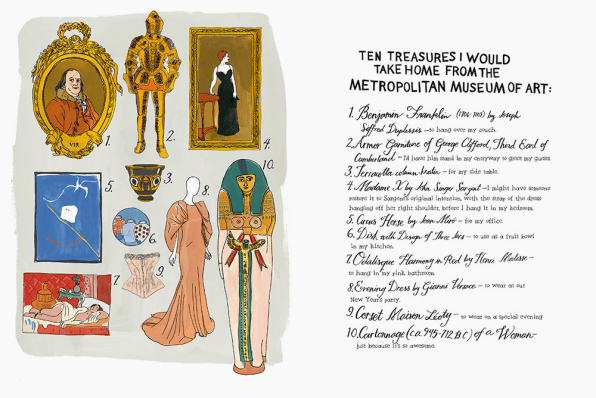 VIR
1.
2.
3.
4.
5.
6.
7.
8.
9.
10.
TEN TREASURES I WOULD
TAKE HOME FROM THE
METROPOLITAN MUSEUM OF ART:
1. Benjamin Franklin by Joseph
Siffred Duplessis — to hang over my couch.
2. Armor Garniture of George Clifford, Third Earl of
Cumberland — I'd have him stand in my entryway to greet my guests.
3. Terracotta column-krater — for my side table.
4. Madame X by John Singer Sargent — I might have someone
restore it to Sargent's original intention, with the strap of the dress
hanging off her right shoulder, before I hang it in my bedroom.
5. Circus Horse by Joan Miró — for my office.
6. Dish with Design of Three Jars — to use as a fruit bowl
in my kitchen.
7. Odalisque Harmony in Red by Henri Matisse —
to hang in my pink bathroom.
8. Evening Dress by Gianni Versace — to wear at our
New Year's party.
9. Corset Maison Léoty — to wear on a special evening
10. Cartonnage (ca. 945-712 BC) of a Woman —
just because it's so awesome.